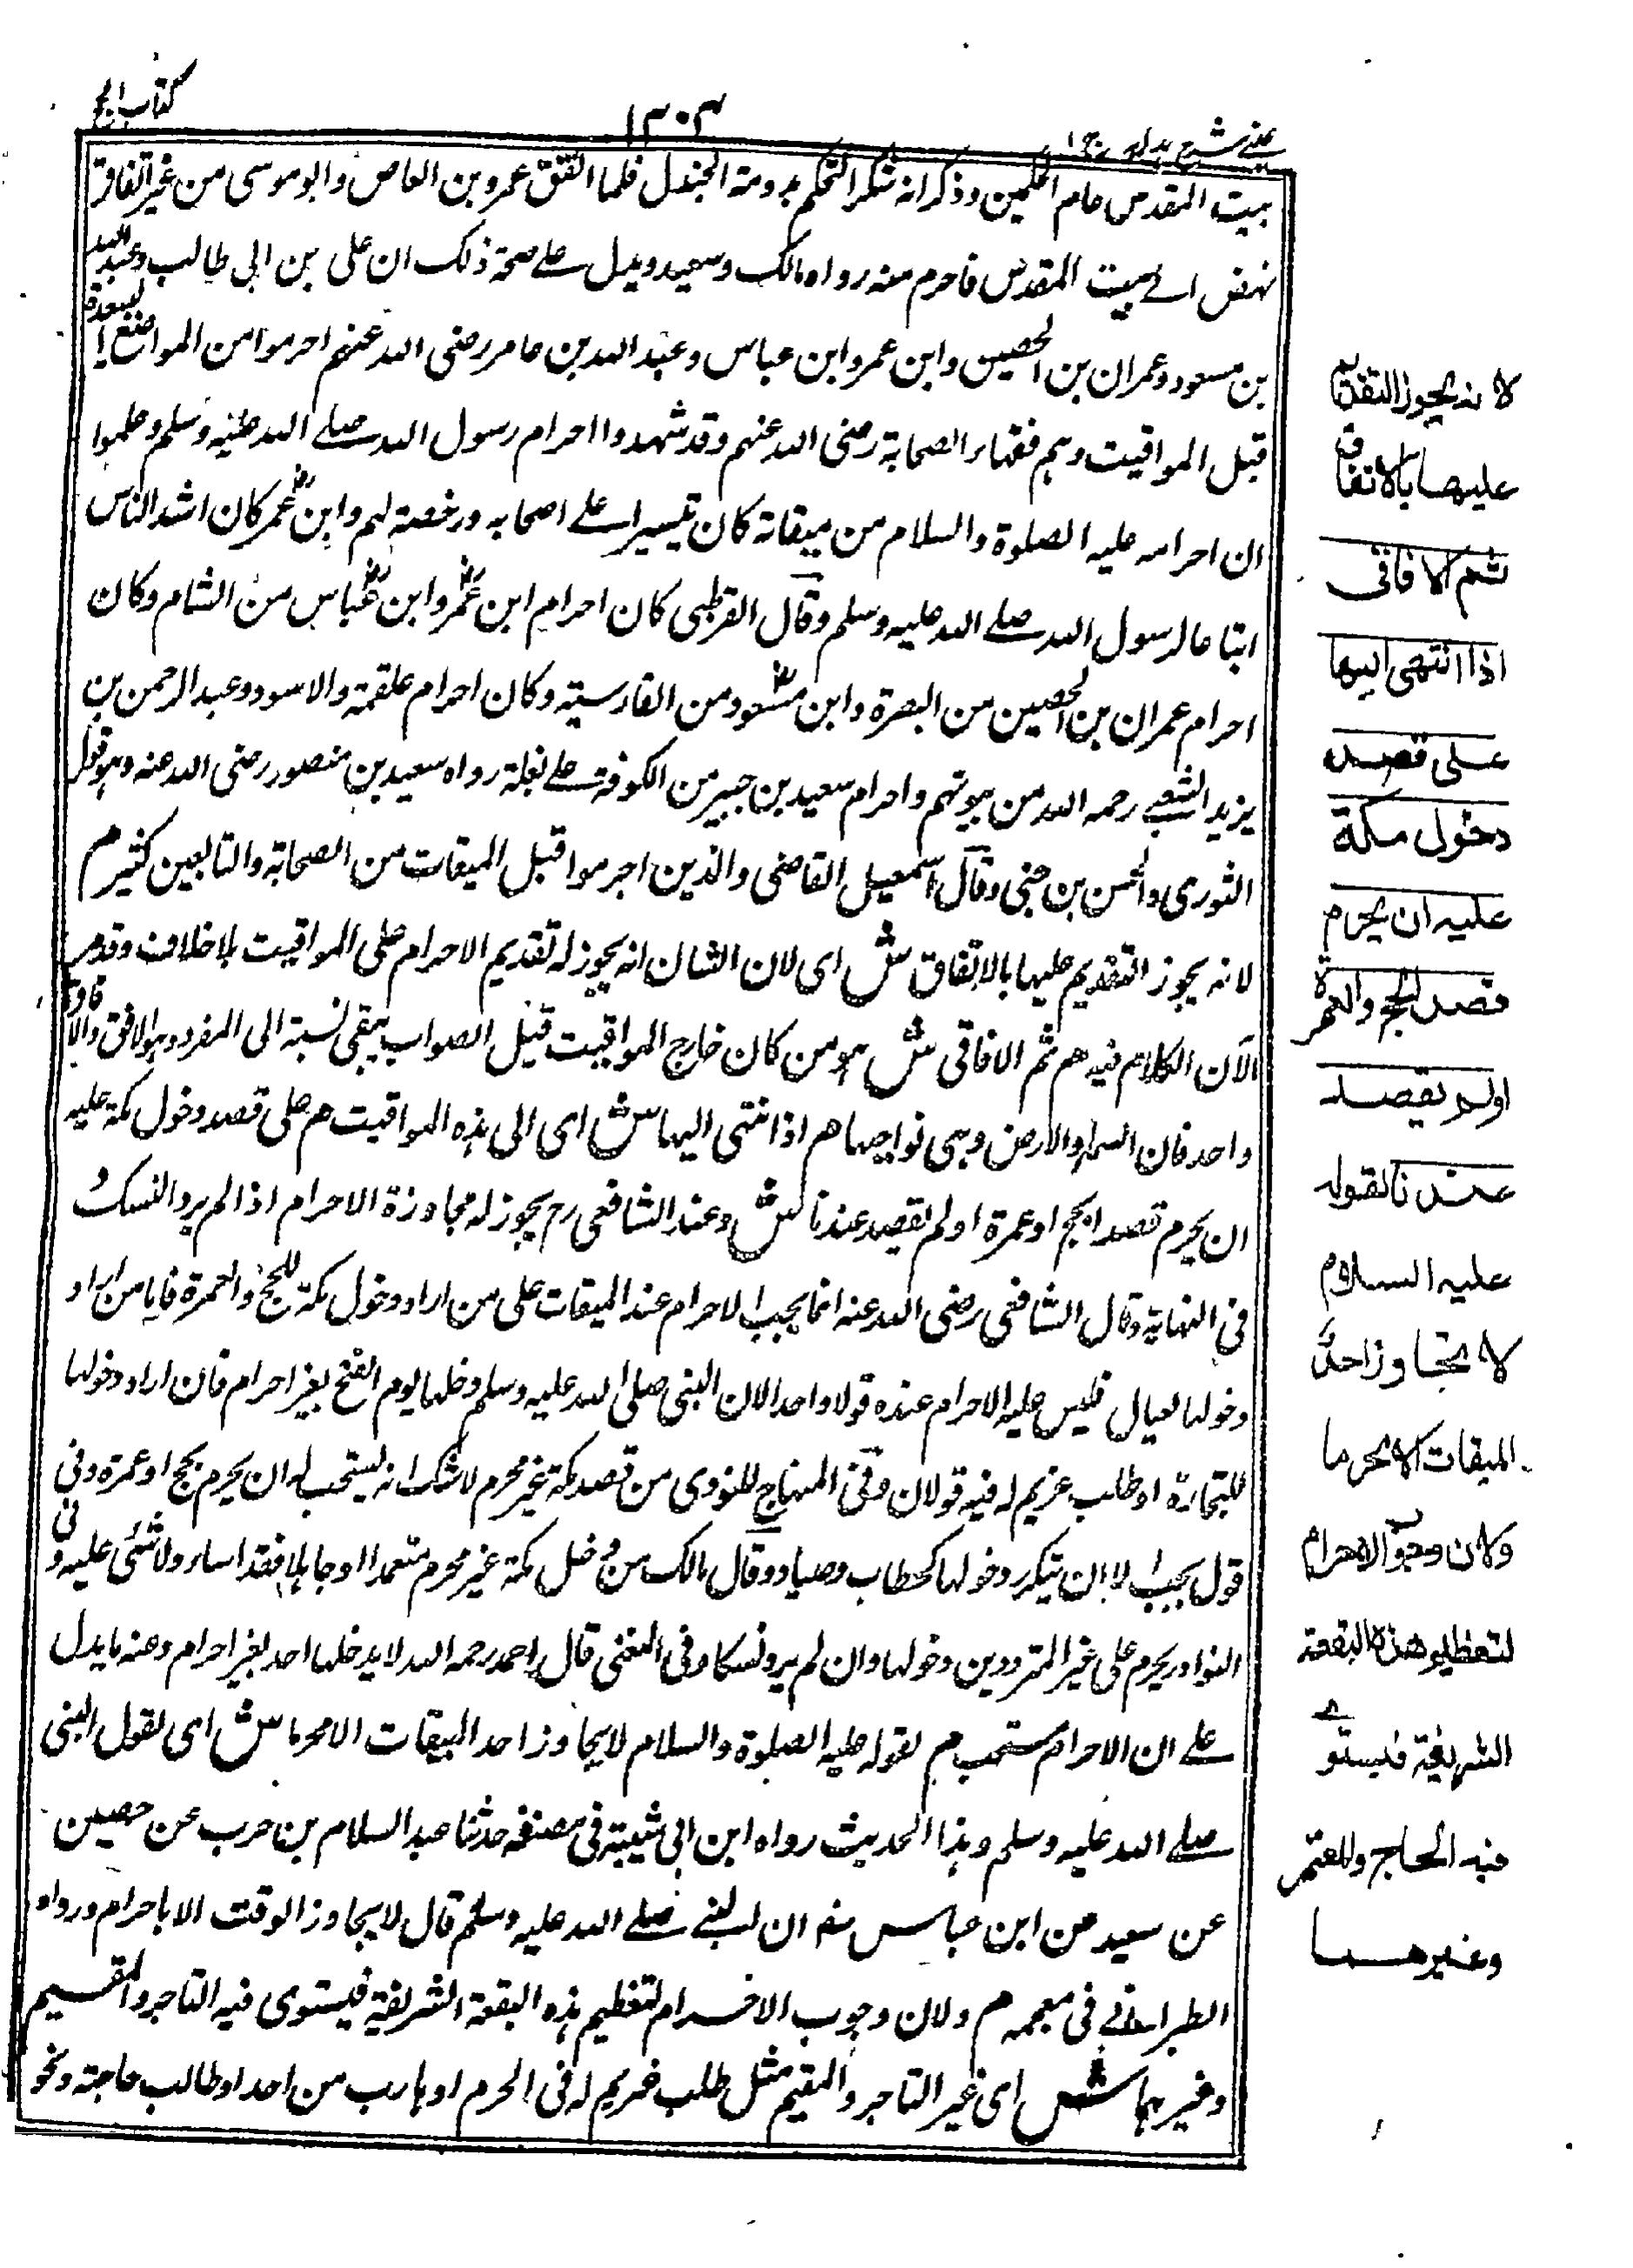 كتاب الحج
١٣٠٣
عینی شرح ہدایہ ج ١
بيت المقدس عام الحكمين وذكر انه شكر التحكم بدومة الجندل فلما اتفق عمرو بن العاص وابو موسى من غير اتفاق
نهض الے بيت المقدس فاحرم منه رواه مالك وسعيد ويدل علے صحة ذلك ان على بن ابى طالب وعبد الله
بن مسعود وعمران بن الحصين وابن عمر وابن عباس وعبد الله بن عامر رضى الله عنهم احرموا من المواضع البعيدة
قبل المواقيت وهم فقهاء الصحابة رضى الله عنهم وقد شهدوا احرام رسول الله صلے الله عليه وسلم وعلموا
ان احرامه عليه الصلوة والسلام من ميقاته كان تيسيرا علے اصحابه ورخصة لهم وابن عمر كان اشد الناس
اتباعا لرسول الله صلے الله عليه وسلم وقال القرطبى كان احرام ابن عمر وابن عباس من الشام وكان
احرام عمران بن الحصين من البصرة وابن مسعود من القادسية وكان احرام علقمة والاسود وعبد الرحمن بن
يزيد الشعبے رحمه الله من بيوتهم واحرام سعيد بن جبير من الكوفة علے بغلة رواه سعيد بن منصور رضى الله عنه وهو قول
الثورى والحسن بن حى وقال اسمعيل القاضى والذين احرموا قبل الميقات من الصحابة والتابعين كثير م
لانه يجوز التقديم عليها بالاتفاق ش اى لان الشان انه يجوز له تقديم الاحرام على المواقيت بلا خلاف وقد مر
الآن الكلام فيه هم ثم الافاقى ش هو من كان خارج المواقيت قيل الصواب يبقى نسبة الى المفرد وهو الافق والآفاق
واحد فان السماء والارض وهى نواحيها هم اذا انتهى اليها ش اى الى هذه المواقيت هم على قصد دخول مكة عليه
ان يحرم قصد الحج او عمرة او لم يقصد عندنا ش وعند الشافعى رح يجوز له مجاوزة الاحرام اذا لم يرد النسك و
فى النهاية وقال الشافعى رضى الله عنه انما يجب الاحرام عند الميقات على من اراد دخول مكة للحج والعمرة فاما من اراد
دخولها لعيال فليس عليه الاحرام عنده قولا واحدا لان النبى صلى الله عليه وسلم دخلها يوم الفتح بغير احرام فان اراد دخولها
للتجارة او طلب غريم له فيه قولان وفى المنهاج للنووى من قصد مكة غير محرم لا شك انه يستحب له ان يحرم بحج او عمرة وفى
قول يجب الا ان يتكرر دخولها كحطاب وصياد وقال مالك من دخل مكة غير محرم متعمدا او جاهلا فقد اساء ولا شئى عليه وفى
النوادر يحرم على غير المترددين دخولها وان لم يرد نسكا وفى المغنى قال احمد رحمه الله لا يدخلها احد بغير احرام وعنه ما يدل
علے ان الاحرام مستحب م لقوله عليه الصلوة والسلام لا يجاوز احد الميقات الا محرما ش اى لقول النبى
صلے الله عليه وسلم وهذا الحديث رواه ابن ابى شيبة فى مصنفه حدثنا عبد السلام بن حرب عن حصين
عن سعيد عن ابن عباس رضہ ان النبے صلے الله عليه وسلم قال لا يجاوز الوقت الا باحرام ورواه
الطبرانے فى معجمه م ولان وجوب الاحرام لتعظيم هذه البقعة الشريفة فيستوى فيه التاجر والمقيم
وغيرهما ش اى غير التاجر والمقيم مثل طلب غريم له فى الحرم او هارب من احد او طالب حاجة ونحو
لانه يجوز التقديم
عليها بالاتفاق
ثم الافاقى
اذا انتهى اليها
على قصد
دخول مكة
عليه ان يحرم
قصد الحج والعمرة
او لم يقصد
عندنا لقوله
عليه السلام
لا يتجاوز احد
الميقات الا محرما
ولان وجوب الاحرام
لتعظيم هذه البقعة
الشريفة فيستوى
فيه الحاج والمعتمر
وغيرهما